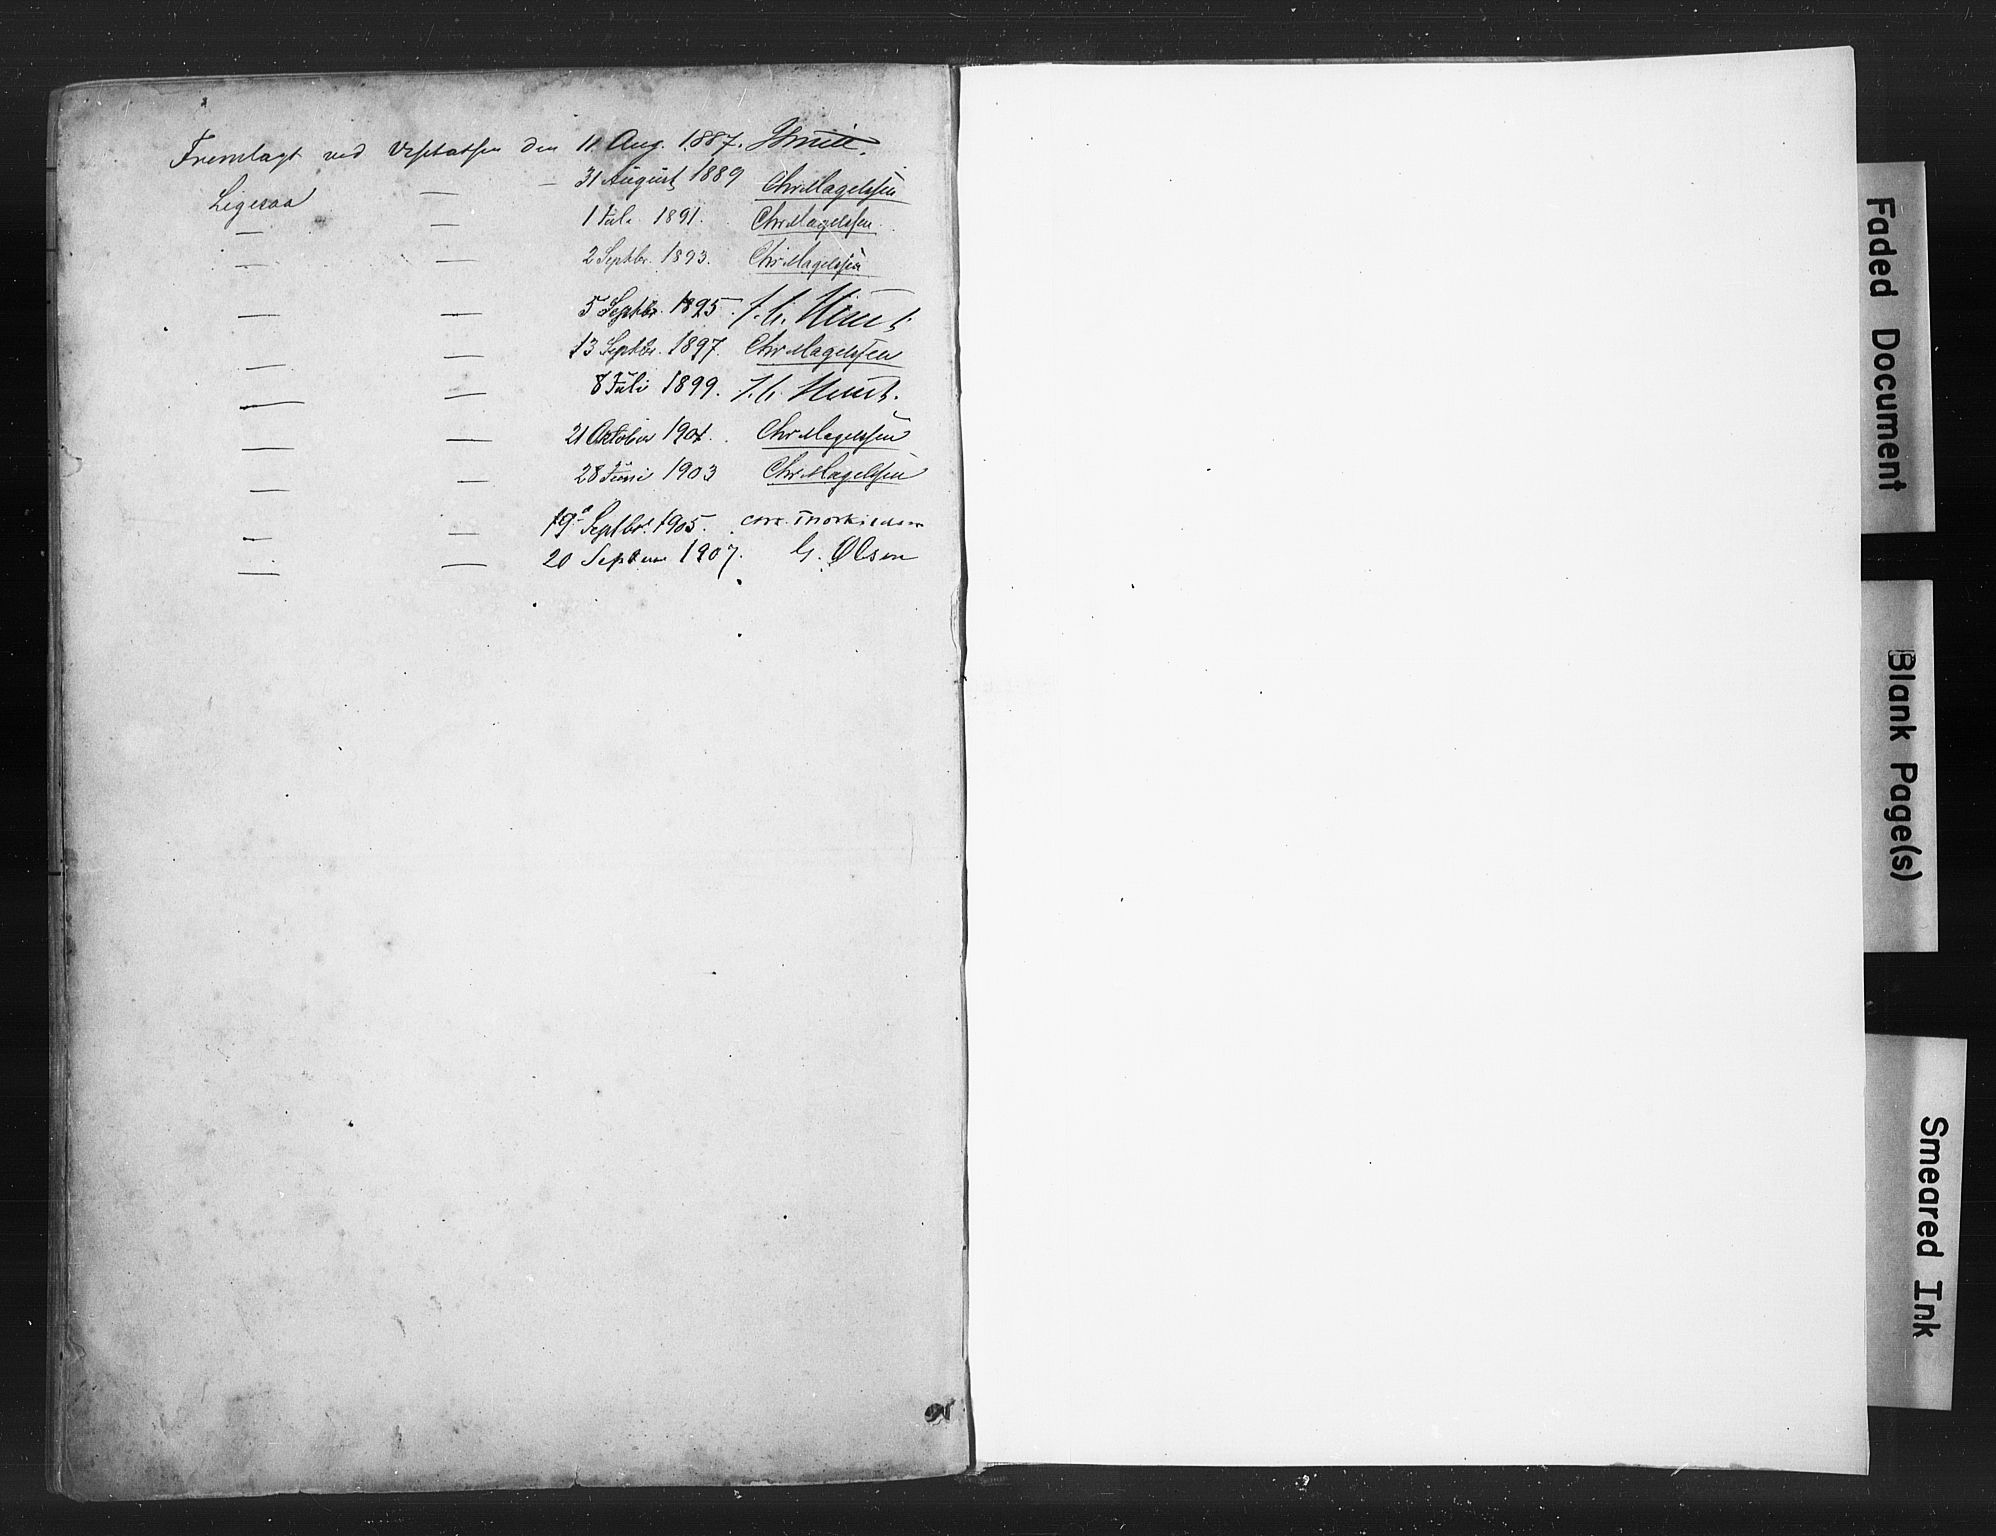 Fremlagt ved Visitatsen den 11 Aug. 1887. JSmitt.
Ligesaa — — 31 August 1889 Chr Magelssen
— — 1 Juli 1891. Chr Magelssen
— — 2 Septbr. 1893. Chr Magelssen
— — 5 Septbr. 1895.
— — 13 Septbr. 1897. Chr Magelssen
— — 8 Juli 1899.
— — 21 Oktober 1901. Chr Magelssen
— — 28 Juni 1903 Chr Magelssen
— — 19 Septbr. 1905.
— — 20 September 1907. G. Olsen
Faded Document
Blank Page(s)
Smeared Ink